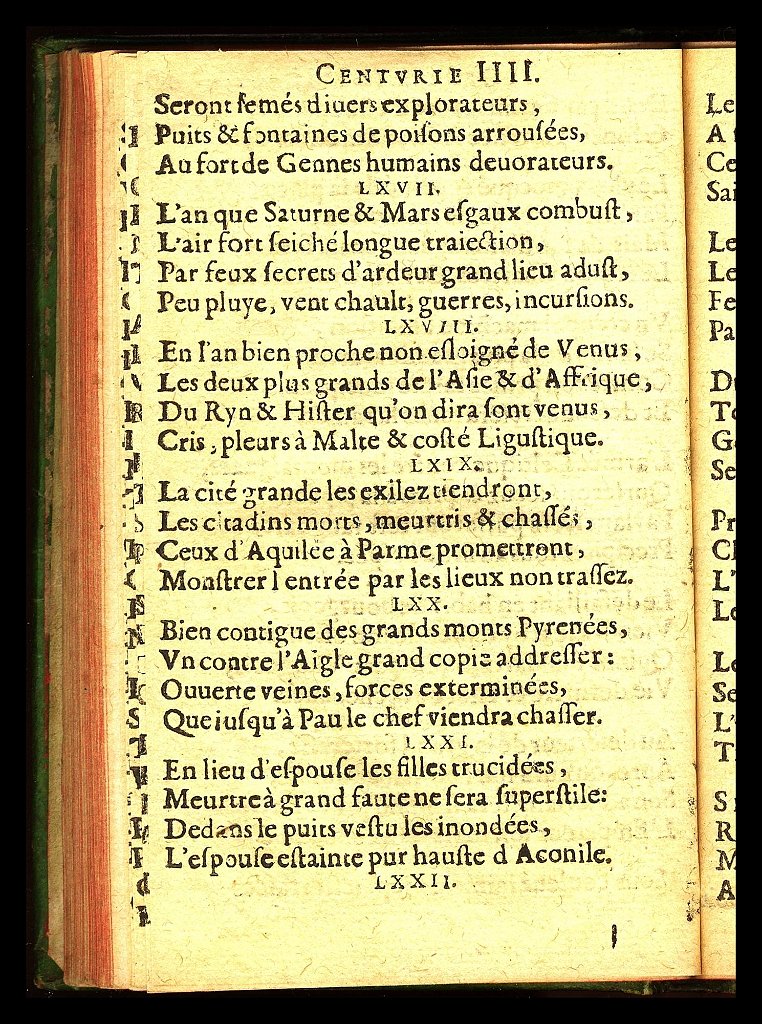 CENTVRIE IIII.
Seront ſemés diuers explorateurs,
Puits & fontaines de poiſons arrouſées,
Au fort de Gennes humains deuorateurs.
LXVII.
L'an que Saturne & Mars eſgaux combuſt,
L'air fort ſeiché longue traiection,
Par feux ſecrets d'ardeur grand lieu aduſt,
Peu pluye, vent chault, guerres, incurſions.
LXVIII.
En l'an bien proche non eſloigné de Venus,
Les deux plus grands de l'Aſie & d'Affrique,
Du Ryn & Hiſter qu'on dira ſont venus,
Cris, pleurs à Malte & coſté Liguſtique.
LXIX.
La cité grande les exilez tiendront,
Les citadins morts, meurtris & chaſſés,
Ceux d'Aquilee à Parme promettront,
Monſtrer l entrée par les lieux non traſſez.
LXX.
Bien contigue des grands monts Pyrenées,
Vn contre l'Aigle grand copie addreſſer:
Ouuerte veines, forces exterminées,
Que iuſqu'à Pau le chef viendra chaſſer.
LXXI.
En lieu d'eſpouſe les filles trucidées,
Meurtre à grand faute ne ſera ſuperſtile:
Dedans le puits veſtu les inondées,
L'eſpouſe eſtainte pur hauſte d Aconile.
LXXII.
Le
A
Ce
Sai
Le
Le
Fe
Pa
D
T
G
Se
Pr
Cl
L'
Le
Le
Se
L'
T
S
R
M
A